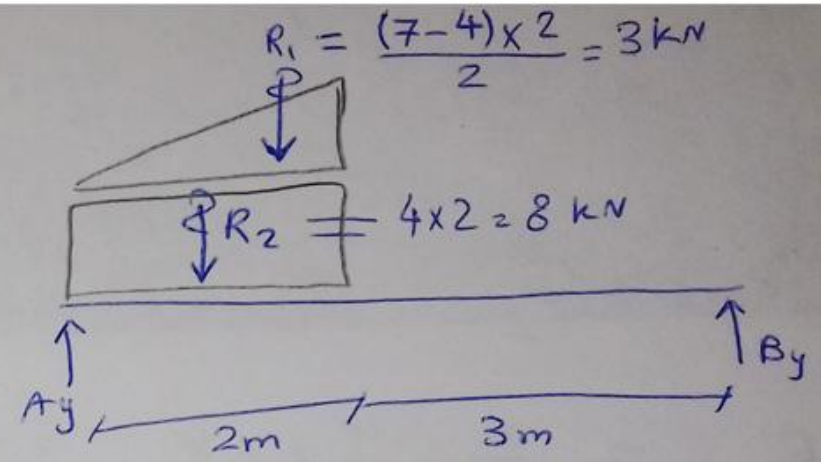 R₁ = (7-4)×2 / 2 = 3 kN
R₂ = 4×2 = 8 kN
Ay
By
2m
3m